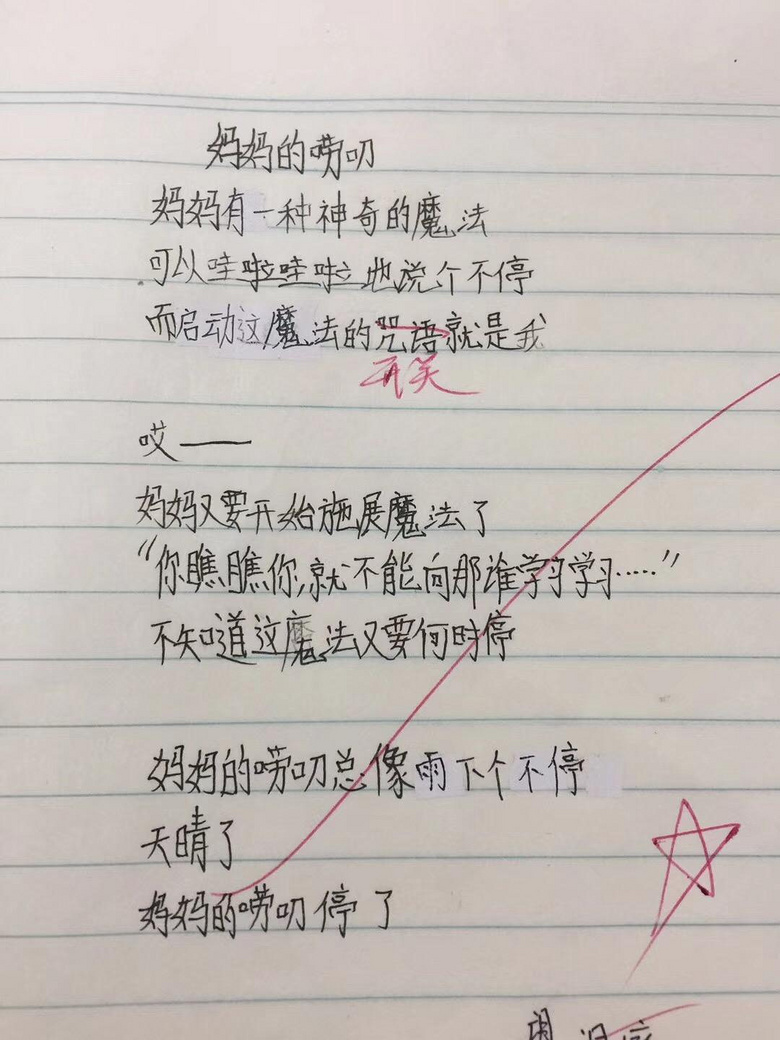 妈妈的唠叨
妈妈有一种神奇的魔法
可以哇啦哇啦地说个不停
而启动这魔法的咒语就是我
哎——
妈妈又要开始施展魔法了
“你瞧瞧你,就不能向那谁学习学习……”
不知道这魔法又要何时停
妈妈的唠叨总像雨下个不停
天晴了
妈妈的唠叨停了